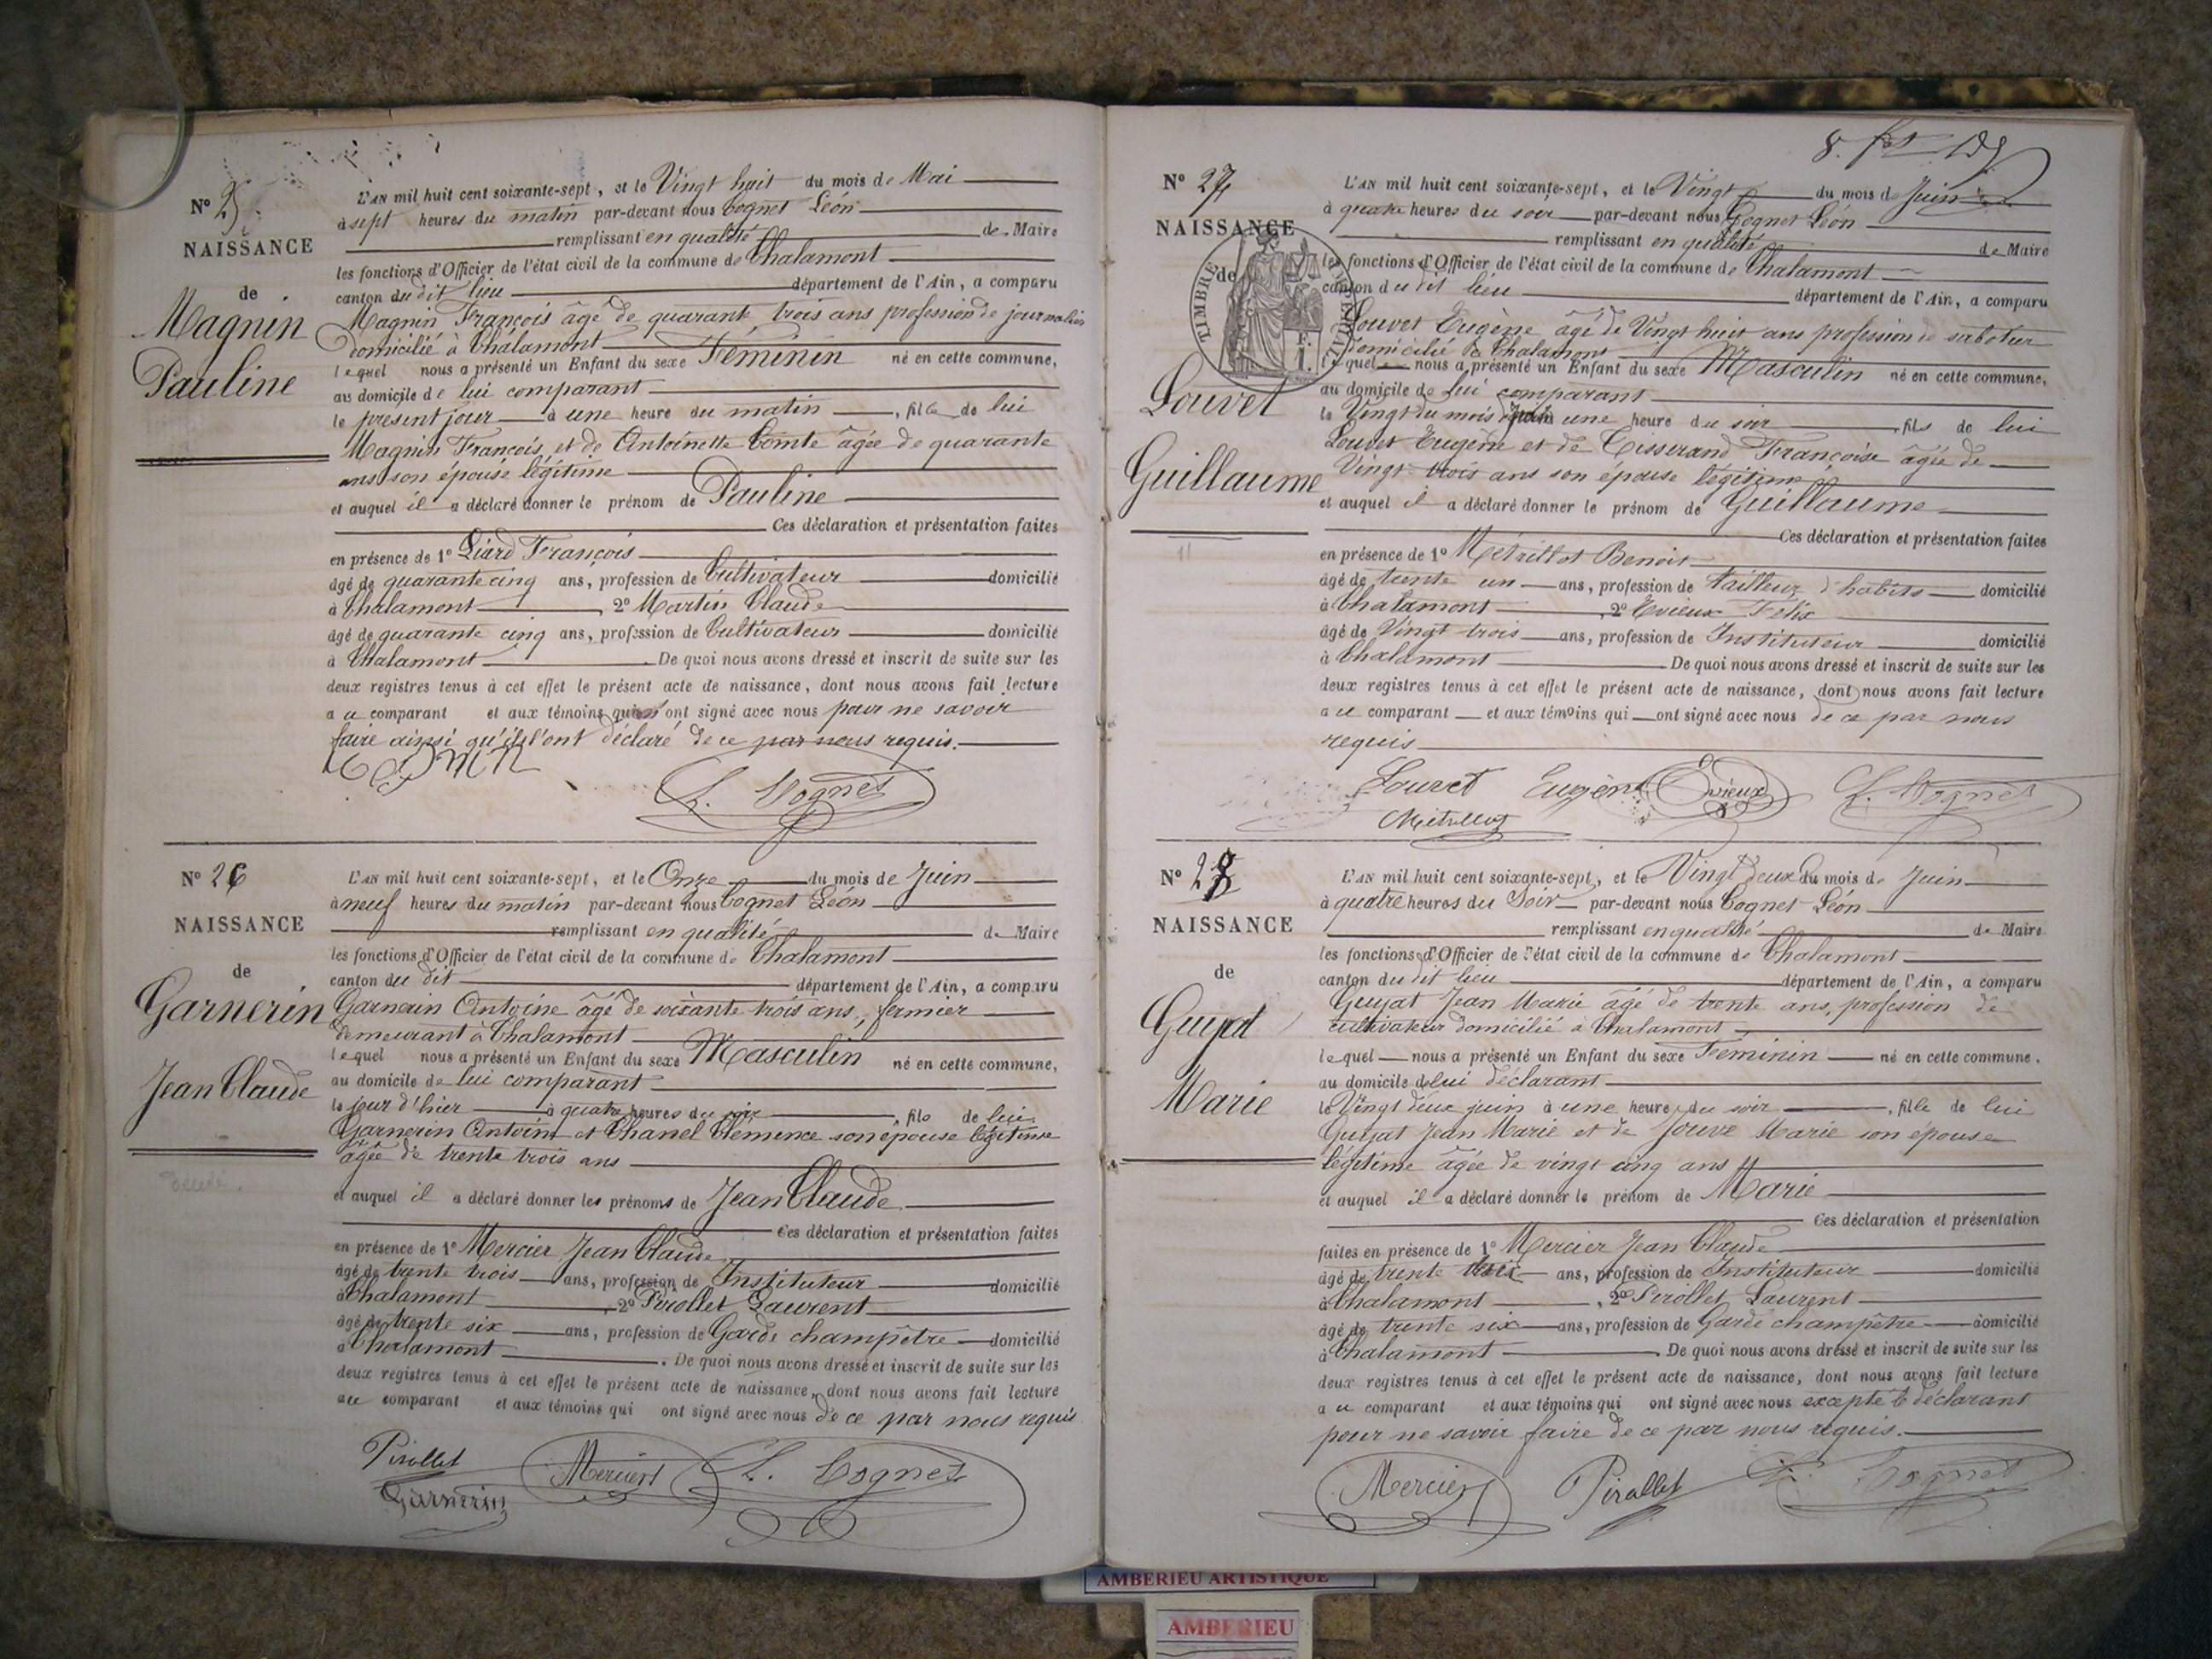 N° 25
NAISSANCE
de
Magnin
Pauline
L'AN mil huit cent soixante-sept, et le Vingt huit du mois de Mai
à sept heures du matin par-devant nous Cognet Léon
remplissant en qualité de Maire
les fonctions d'Officier de l'état civil de la commune de Chalamont
canton du dit lieu département de l'Ain, a comparu
Magnin François âgé de quarante trois ans profession de journalier
domicilié à Chalamont
lequel nous a présenté un Enfant du sexe Féminin né en cette commune,
au domicile de lui comparant
le présent jour à une heure du matin, fille de lui
Magnin François et de Antoinette Comte âgée de quarante
ans son épouse légitime
et auquel il a déclaré donner le prénom de Pauline
Ces déclaration et présentation faites
en présence de 1° Liard François
âgé de quarante cinq ans, profession de Cultivateur domicilié
à Chalamont, 2° Martin Claude
âgé de quarante cinq ans, profession de Cultivateur domicilié
à Chalamont De quoi nous avons dressé et inscrit de suite sur les
deux registres tenus à cet effet le présent acte de naissance, dont nous avons fait lecture
au comparant et aux témoins qui ont signé avec nous pour ne savoir
faire ainsi qu'ils l'ont déclaré de ce par nous requis.
L. Cognet
N° 26
NAISSANCE
de
Garnerin
Jean Claude
L'AN mil huit cent soixante-sept, et le Onze du mois de Juin
à neuf heures du matin par-devant nous Cognet Léon
remplissant en qualité de Maire
les fonctions d'Officier de l'état civil de la commune de Chalamont
canton du dit département de l'Ain, a comparu
Garnerin Antoine âgé de soixante trois ans, fermier
demeurant à Chalamont
lequel nous a présenté un Enfant du sexe Masculin né en cette commune,
au domicile de lui comparant
le jour d'hier à quatre heures du soir, fils de lui
Garnerin Antoine et Chanel Clémence son épouse légitime
âgée de trente trois ans
et auquel il a déclaré donner les prénoms de Jean Claude
Ces déclaration et présentation faites
en présence de 1° Mercier Jean Claude
âgé de trente trois ans, profession de Instituteur domicilié
à Chalamont, 2° Pirollet Laurent
âgé de trente six ans, profession de Garde champêtre domicilié
à Chalamont. De quoi nous avons dressé et inscrit de suite sur les
deux registres tenus à cet effet le présent acte de naissance, dont nous avons fait lecture
au comparant et aux témoins qui ont signé avec nous de ce par nous requis
Pirollet Mercier L. Cognet
Garnerin
N° 27
NAISSANCE
de
TIMBRE IMPERIAL
F.
1.
Louvet
Guillaume
L'AN mil huit cent soixante-sept, et le Vingt du mois de Juin
à quatre heures du soir par-devant nous Cognet Léon
remplissant en qualité de Maire
les fonctions d'Officier de l'état civil de la commune de Chalamont
canton du dit lieu département de l'Ain, a comparu
Louvet Eugène âgé de Vingt huit ans profession de sabotier
domicilié à Chalamont
lequel nous a présenté un Enfant du sexe Masculin né en cette commune,
au domicile de lui comparant
le Vingt du mois Juin une heure du soir, fils de lui
Louvet Eugène et de Tisserand Françoise âgée de
Vingt trois ans son épouse légitime
et auquel il a déclaré donner le prénom de Guillaume
Ces déclaration et présentation faites
en présence de 1° Métrillot Benoit
âgé de trente un ans, profession de tailleur d'habits domicilié
à Chalamont, 2° Evieux Félix
âgé de Vingt trois ans, profession de Instituteur domicilié
à Chalamont De quoi nous avons dressé et inscrit de suite sur les
deux registres tenus à cet effet le présent acte de naissance, dont nous avons fait lecture
au comparant et aux témoins qui ont signé avec nous de ce par nous
requis
Louvet Eugène Evieux L. Cognet
N° 28
NAISSANCE
de
Guyat
Marie
L'AN mil huit cent soixante-sept, et le Vingt deux du mois de Juin
à quatre heures du Soir par-devant nous Cognet Léon
remplissant en qualité de Maire
les fonctions d'Officier de l'état civil de la commune de Chalamont
canton du dit lieu département de l'Ain, a comparu
Guyat Jean Marie âgé de trente ans, profession de
cultivateur domicilié à Chalamont
lequel nous a présenté un Enfant du sexe Féminin né en cette commune.
au domicile de lui déclarant
le Vingt deux juin à une heure du soir, fille de lui
Guyat Jean Marie et de Jouve Marie son épouse
légitime âgée de vingt cinq ans
et auquel il a déclaré donner le prénom de Marie
Ces déclaration et présentation
faites en présence de 1° Mercier Jean Claude
âgé de trente trois ans, profession de Instituteur domicilié
à Chalamont, 2° Pirollet Laurent
âgé de trente six ans, profession de Garde champêtre domicilié
à Chalamont. De quoi nous avons dressé et inscrit de suite sur les
deux registres tenus à cet effet le présent acte de naissance, dont nous avons fait lecture
au comparant et aux témoins qui ont signé avec nous excepté le déclarant
pour ne savoir faire de ce par nous requis.
Mercier Pirollet L. Cognet
AMBERIEU ARTISTIQUE
AMBERIEU